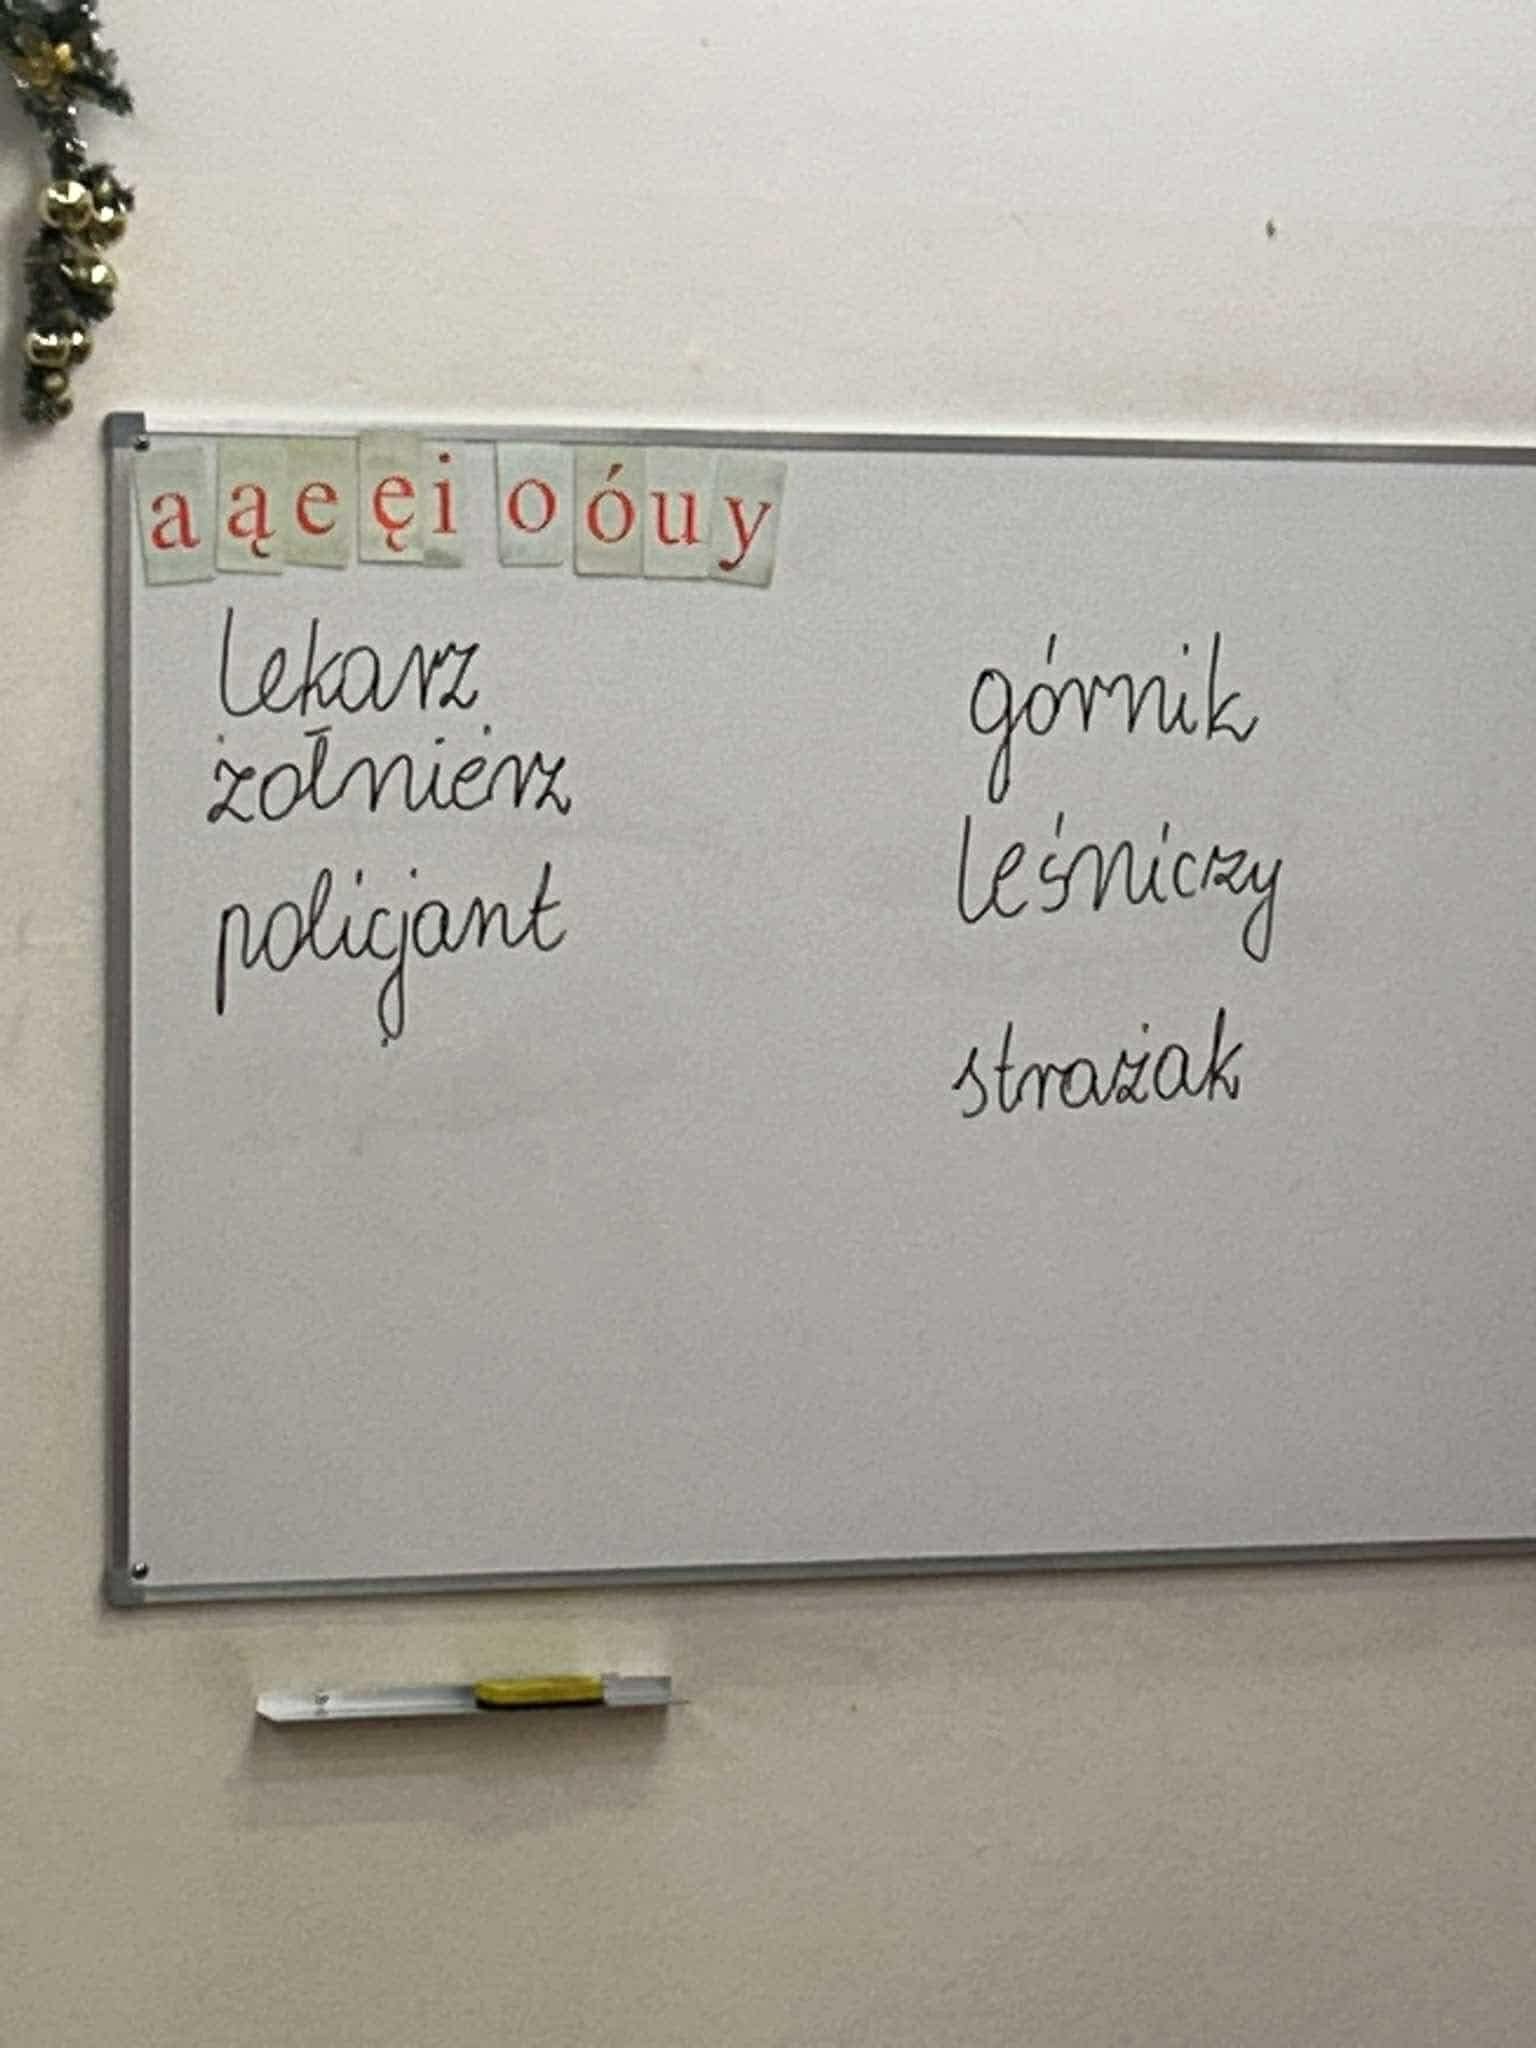 a ą e ę i o ó u y
lekarz
żołnierz
policjant
górnik
leśniczy
strażak